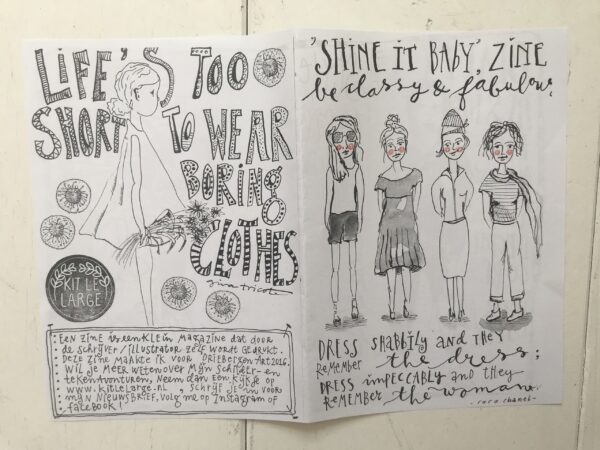 LIFE'S TOO
SHORT TO WEAR
BORING
CLOTHES
gina tricot
KIT LE
LARGE
EEN ZINE IS EEN KLEIN MAGAZINE DAT DOOR
DE SCHRIJVER / ILLUSTRATOR ZELF WORDT GEDRUKT.
DEZE ZINE MAAKTE IK VOOR DRIEBERGEN ART 2016.
WIL JE MEER WETEN OVER MIJN SCHILDER- EN
TEKENAVONTUREN, NEEM DAN EEN KIJKJE OP
WWW.KITLELARGE.NL SCHRIJF JE IN VOOR
MIJN NIEUWSBRIEF, VOLG ME OP INSTAGRAM OF
FACEBOOK!
'SHINE IT BABY', ZINE
be classy & fabulous.
DRESS SHABBILY AND THEY
REMEMBER the dress;
DRESS IMPECCABLY AND THEY
REMEMBER the woman.
- coco chanel -